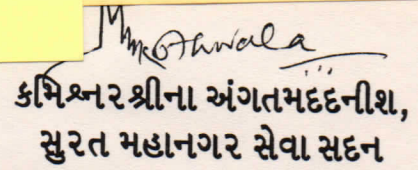 કમિશ્નરશ્રીના અંગતમદદનીશ,
સુરત મહાનગર સેવા સદન